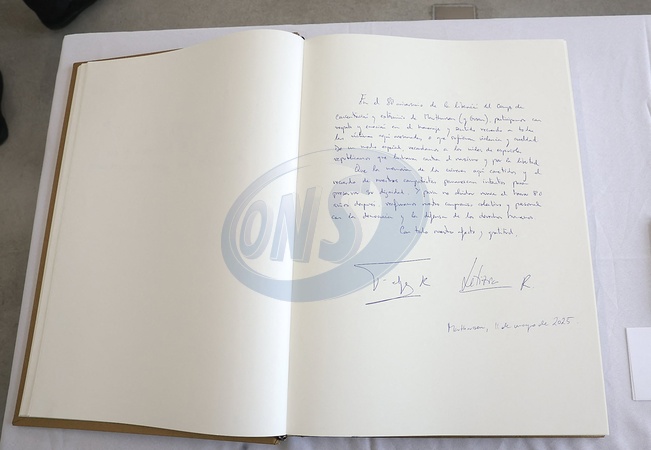 En el 80 aniversario de la liberación del Campo de
concentración y exterminio de Mauthausen (y Gusen), participamos con
respeto y emoción en el homenaje y sentido recuerdo a todas
las víctimas aquí asesinadas, o que sufrieron violencia y crueldad.
De un modo especial, recordamos a los miles de españoles
republicanos que lucharon contra el nazismo y por la libertad.
Que la memoria de los crímenes aquí cometidos y el
recuerdo de nuestros compatriotas permanezcan intactos para
preservar su dignidad. Y para no olvidar nunca el horror 80
años después reafirmamos nuestro compromiso colectivo y personal
con la democracia y la defensa de los derechos humanos
Con todo nuestro afecto y gratitud
ONS
Felipe R Letizia R.
Mauthausen, 11 de mayo de 2025